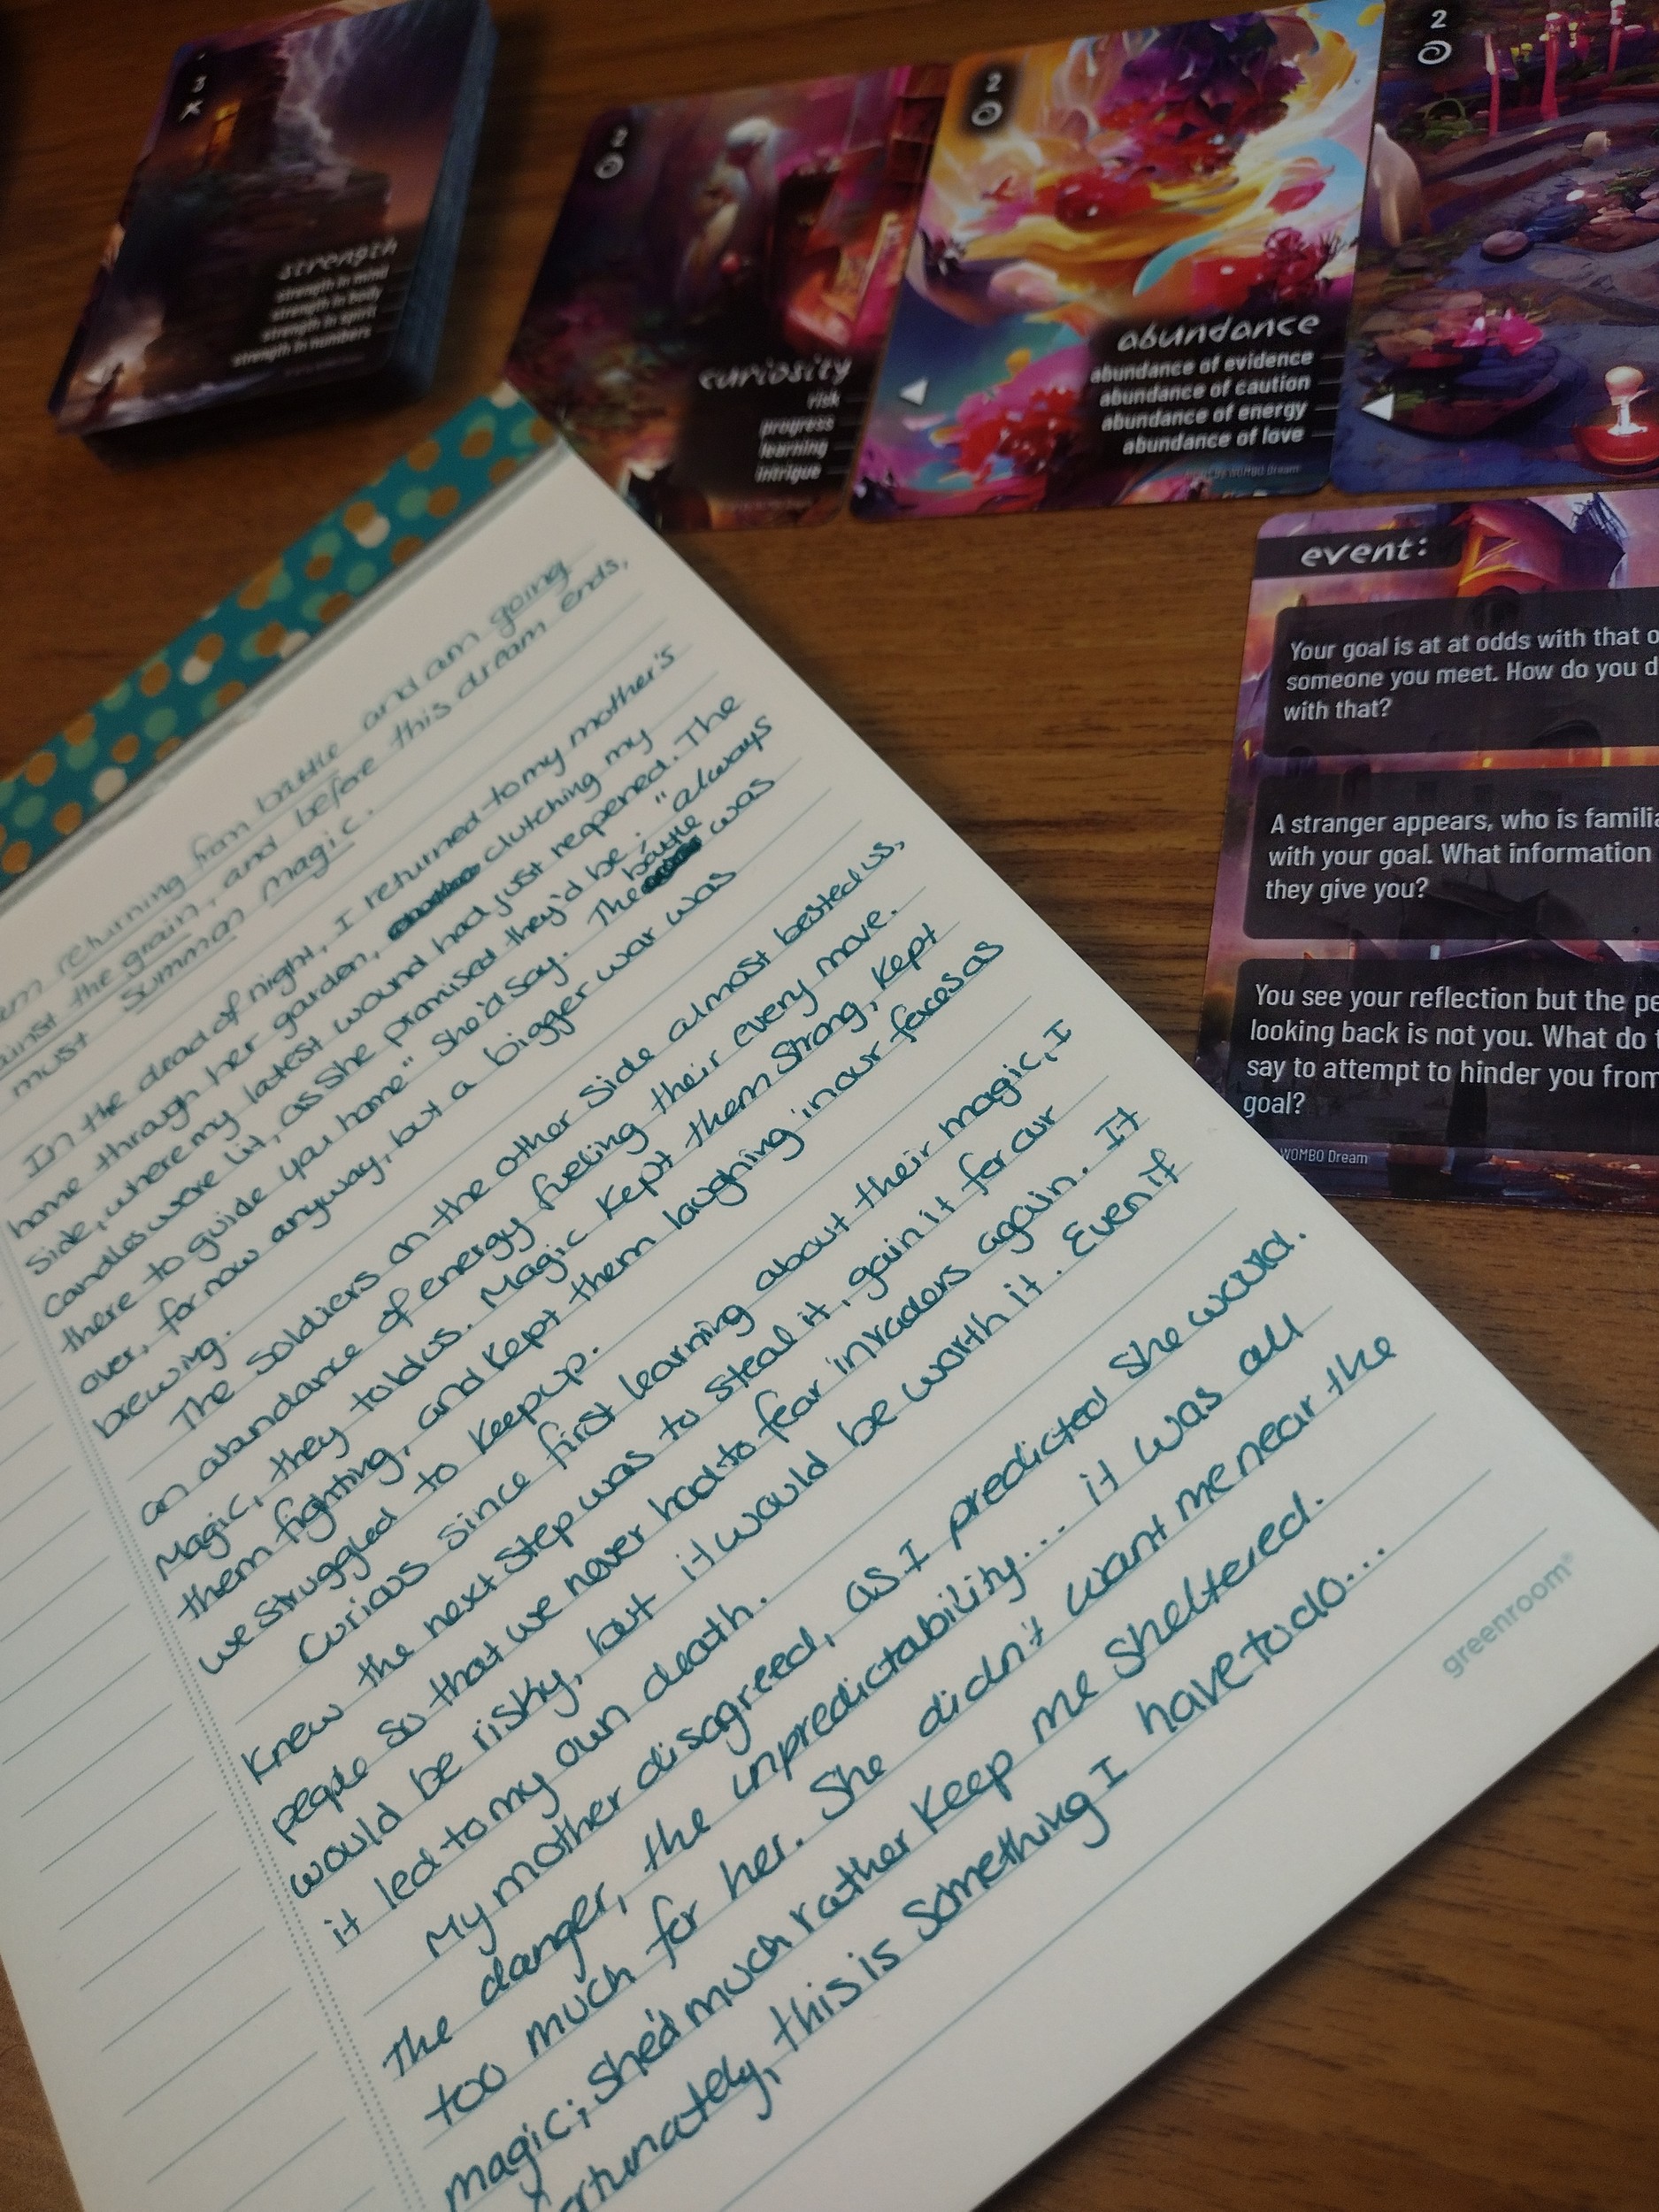 3
strength
strength in mind
strength in body
strength in spirit
strength in numbers
2
curiosity
risk
progress
learning
intrigue
2
abundance
abundance of evidence
abundance of caution
abundance of energy
abundance of love
WOMBO Dream
2
event:
Your goal is at at odds with that
someone you meet. How do you
with that?
A stranger appears, who is
with your goal. What information
they give you?
You see your reflection but the
looking back is not you. What do
say to attempt to hinder you from
goal?
WOMBO Dream
returning from battle and am going
the grain, and before this dream ends,
must summon magic.
In the dead of night, I returned to my mother's
home through her garden, clutching my
side, where my latest wound had just reopened. The
candles were lit, as she promised they'd be; "always
there to guide you home" she'd say. The battle was
over, for now anyway, but a bigger war was
brewing.
The soldiers on the other side almost bested us,
an abundance of energy fueling their every move.
Magic, they told us. Magic kept them strong, kept
them fighting, and kept them laughing in our faces as
we struggled to keep up.
Curious since first learning about their magic, I
knew the next step was to steal it, gain it for our
people so that we never had to fear invaders again. It
would be risky, but it would be worth it. Even if
it led to my own death.
My mother disagreed, as I predicted she would.
The danger, the unpredictability... it was all
too much for her. She didn't want me near the
magic; she'd much rather keep me sheltered.
this is something I have to do...
greenroom